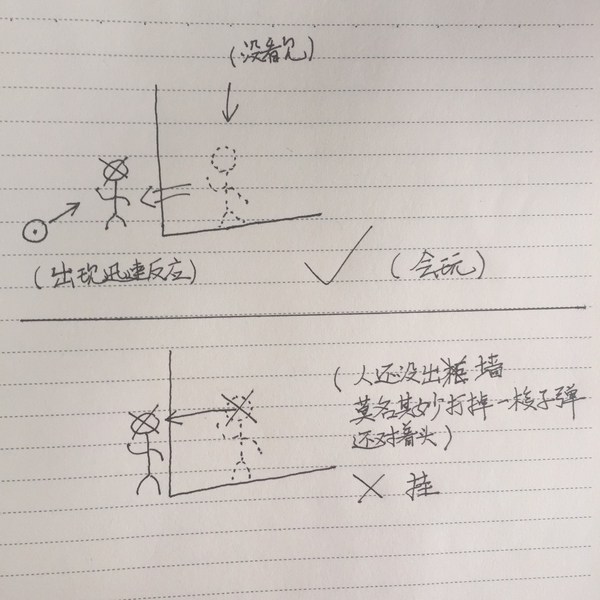 (没看见)
(出现迅速反应)
(会玩)
(人还没出 墙
莫名其妙打掉一梭子弹
还对着头)
挂